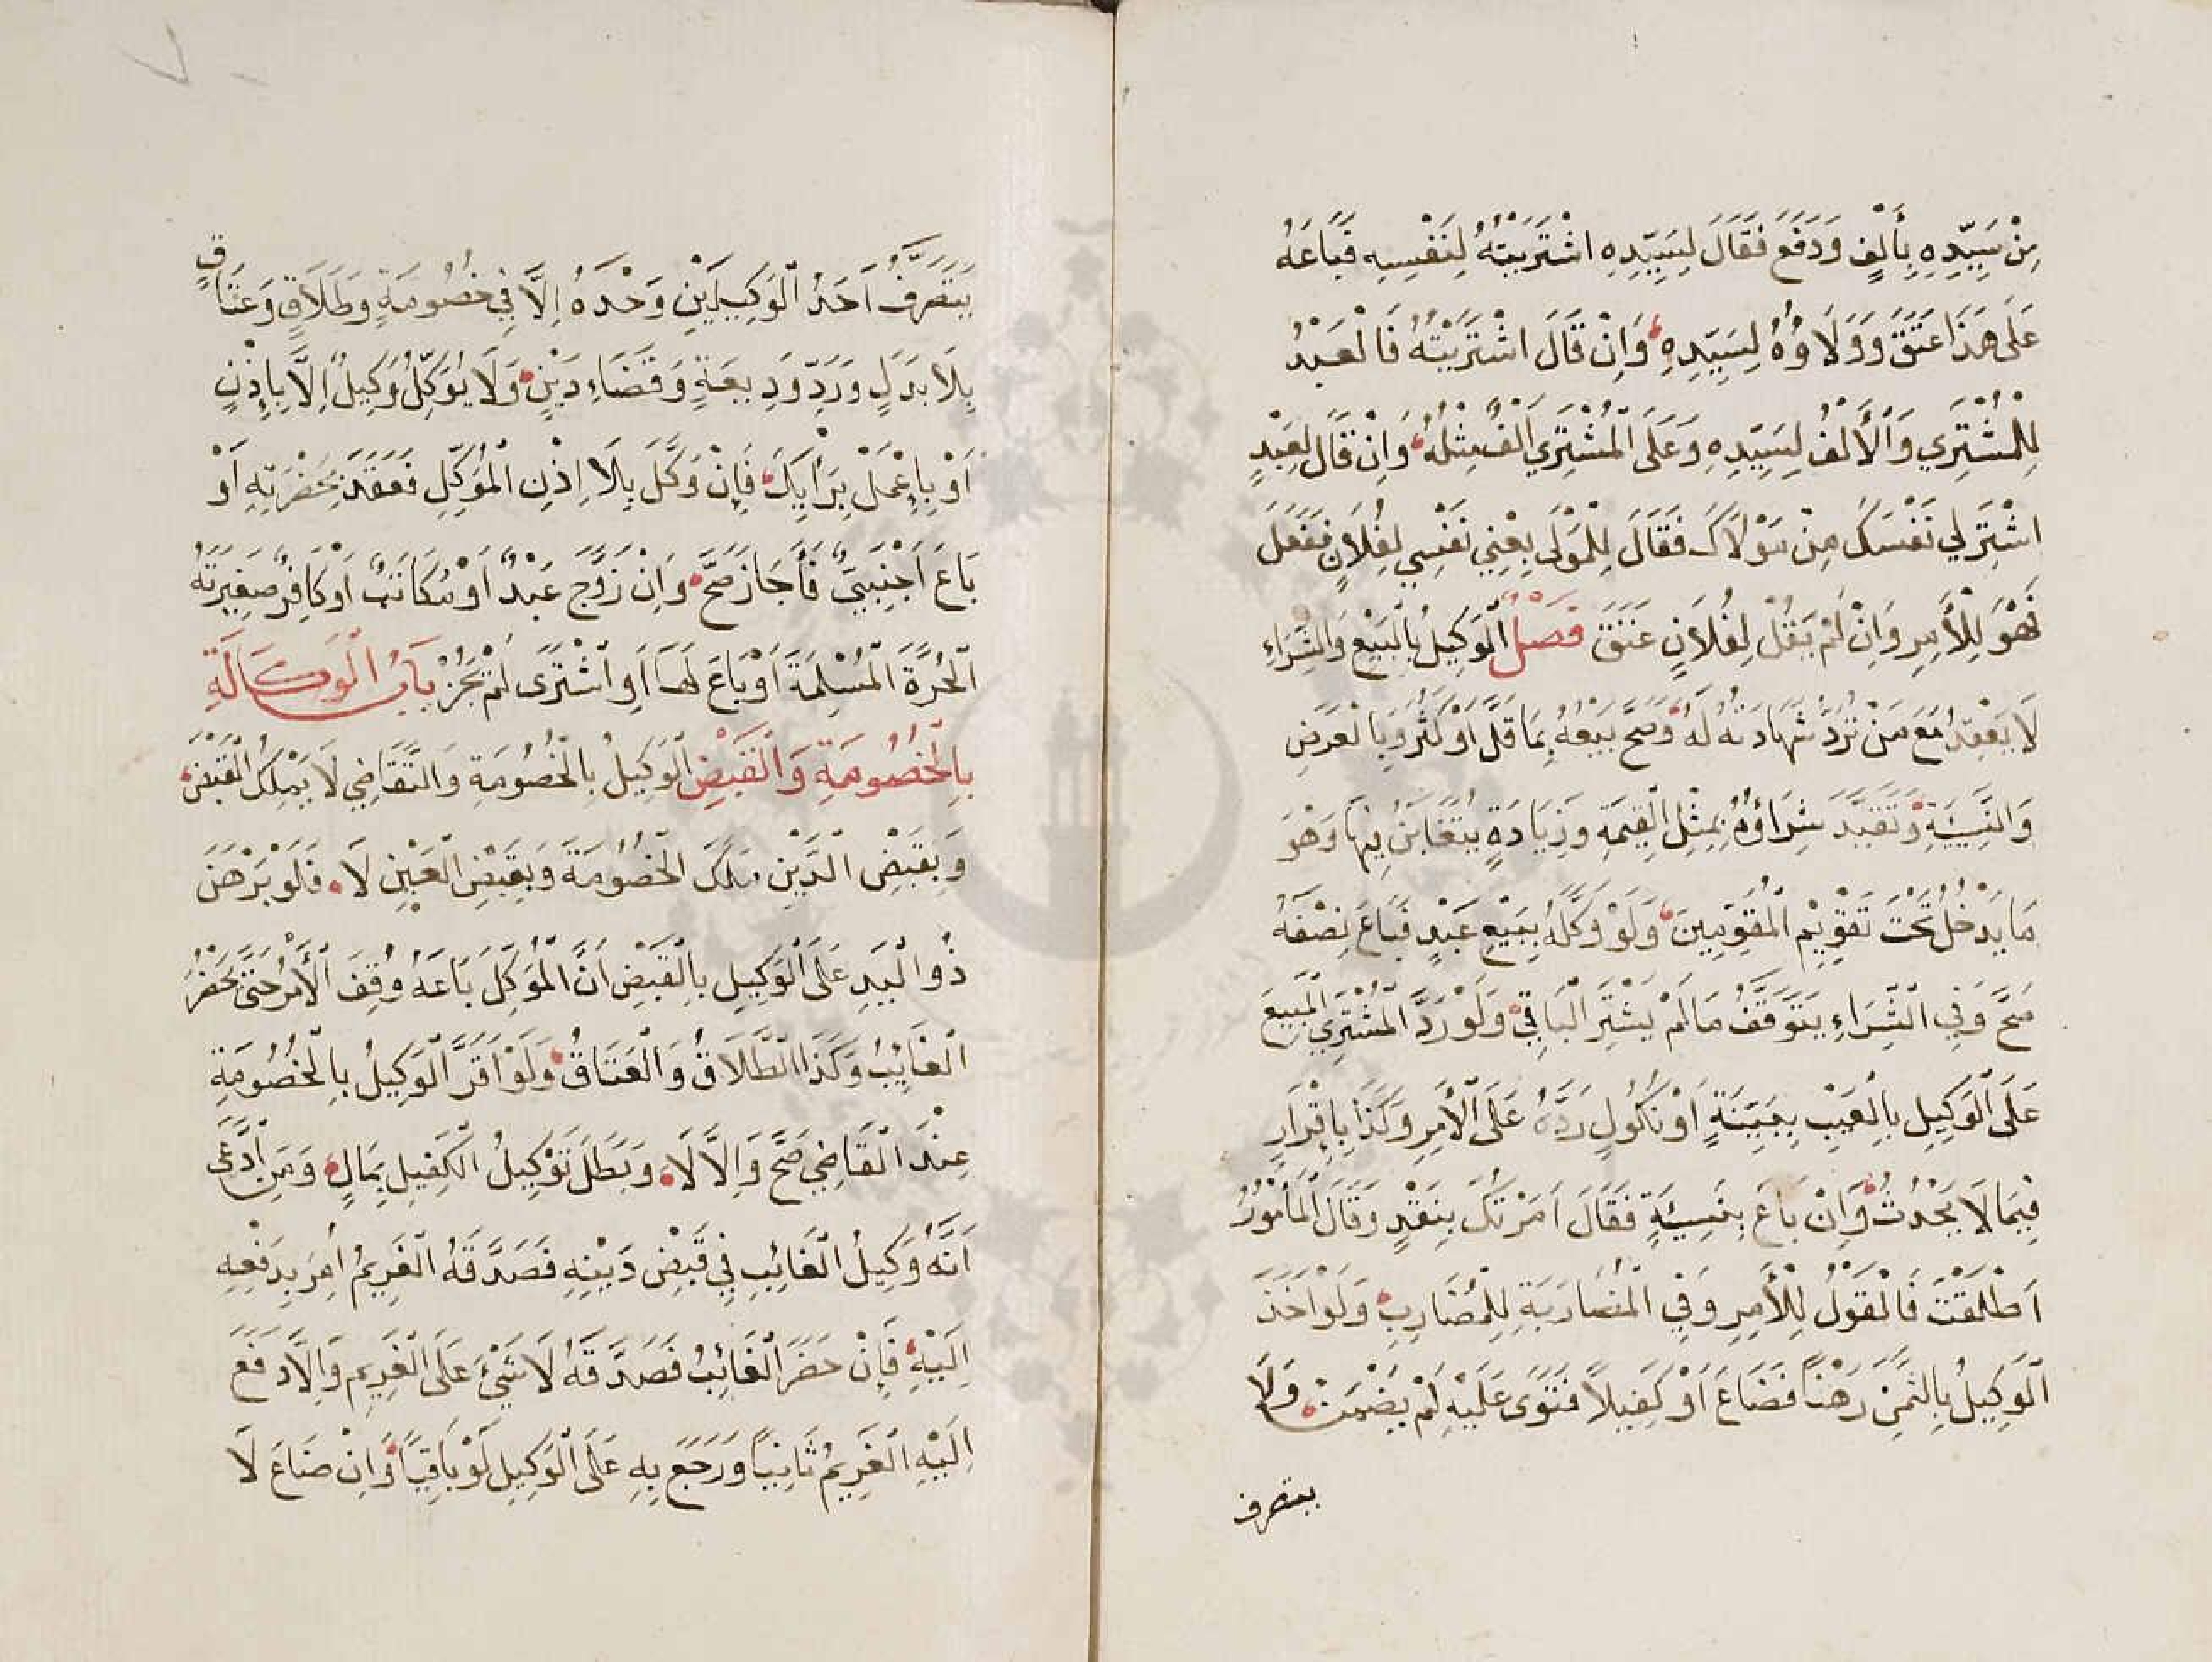 مِنْ سَيِّدِهِ بِأَلْفٍ وَدَفَعَ فَقَالَ لِسَيِّدِهِ اشْتَرَيْتُهُ لِنَفْسِهِ فَبَاعَهُ
عَلَى هَذَا عَتَقَ وَوَلَاؤُهُ لِسَيِّدِهِ وَاِنْ قَالَ اشْتَرَيْتُهُ فَالْعَبْدُ
لِلْمُشْتَرِي وَالْأَلْفُ لِسَيِّدِهِ وَعَلَى الْمُشْتَرِي أَلْفٌ مِثْلُهُ وَاِنْ قَالَ لِعَبْدٍ
اشْتَرِ لِي نَفْسَكَ مِنْ مَوْلَاكَ فَقَالَ لِلْمَوْلَى بِعْنِي نَفْسِي لِفُلَانٍ فَفَعَلَ
فَهُوَ لِلْأَمِرِ وَاِنْ لَمْ يَقُلْ لِفُلَانٍ عَتَقَ فَصْلٌ الْوَكِيلُ بِالْبَيْعِ وَالشِّرَاءِ
لَا يَعْقِدُ مَعَ مَنْ تُرَدُّ شَهَادَتُهُ لَهُ وَصَحَّ بَيْعُهُ بِمَا قَلَّ اَوْ كَثُرَ وَبِالْعَرَضِ
وَالنَّسِيئَةِ وَتَقَيَّدَ شِرَاؤُهُ بِمِثْلِ الْقِيمَةِ وَزِيَادَةٍ يَتَغَابَنُ فِيهَا وَهُوَ
مَا يَدْخُلُ تَحْتَ تَقْوِيْمِ الْمُقَوِّمِينَ وَلَوْ وَكَّلَهُ بِبَيْعِ عَبْدٍ فَبَاعَ نِصْفَهُ
صَحَّ وَفِي الشِّرَاءِ يَتَوَقَّفُ مَا لَمْ يَشْتَرِ الْبَاقِيَ وَلَوْ رَدَّ الْمُشْتَرِي الْمَبِيعَ
عَلَى الْوَكِيلِ بِالْعَيْبِ بِبَيِّنَةٍ اَوْ نُكُولٍ رَدَّهُ عَلَى الْأَمِرِ وَكَذَا بِاِقْرَارِ
فِيمَا لَا يَحْدُثُ وَاِنْ بَاعَ بِنَسِيئَةٍ فَقَالَ اَمَرْتُكَ بِنَقْدٍ وَقَالَ الْمَأْمُورُ
اَطْلَقْتَ فَالْقَوْلُ لِلْأَمِرِ وَفِي الْمُضَارَبَةِ لِلْمُضَارِبِ وَلَوْ اَخَذَ
الْوَكِيلُ بِالثَّمَنِ رَهْنًا فَضَاعَ اَوْ كَفِيلًا فَتَوَى عَلَيْهِ لَمْ يَضْمَنْ وَلَا
يتصرف
يَتَصَرَّفُ اَحَدُ الْوَكِيلَيْنِ وَحْدَهُ اِلَّا فِي خُصُومَةٍ وَطَلَاقٍ وَعَتَاقٍ
بِلَا بَدَلٍ وَرَدِّ وَدِيعَةٍ وَقَضَاءِ دَيْنٍ وَلَا يُوَكِّلُ وَكِيلٌ اِلَّا بِاِذْنٍ
اَوْ بِاِعْمَلْ بِرَأْيِكَ فَاِنْ وَكَّلَ بِلَا اِذْنِ الْمُوَكِّلِ فَعَقَدَ بِحَضْرَتِهِ اَوْ
بَاعَ اَجْنَبِيٌّ فَأَجَازَ صَحَّ وَاِنْ زَوَّجَ عَبْدٌ اَوْ مُكَاتَبٌ اَوْ كَافِرٌ صَغِيرَتَهُ
الْحُرَّةَ الْمُسْلِمَةَ اَوْ بَاعَ لَهَا اَوِ اشْتَرَى لَمْ يَجُزْ بَابُ الْوَكَالَةِ
بِالْخُصُومَةِ وَالْقَبْضِ الْوَكِيلُ بِالْخُصُومَةِ وَالتَّقَاضِي لَا يَمْلِكُ الْقَبْضَ
وَبِقَبْضِ الدَّيْنِ مَلَكَ الْخُصُومَةَ وَبِقَبْضِ الْعَيْنِ لَا فَلَوْ بَرْهَنَ
ذُو الْيَدِ عَلَى الْوَكِيلِ بِالْقَبْضِ اَنَّ الْمُوَكِّلَ بَاعَهُ وُقِفَ الْأَمْرُ حَتَّى يَحْضُرَ
الْغَايِبُ وَكَذَا الطَّلَاقُ وَالْعَتَاقُ وَلَوْ اَقَرَّ الْوَكِيلُ بِالْخُصُومَةِ
عِنْدَ الْقَاضِي صَحَّ وَاِلَّا لَا وَبَطَلَ تَوْكِيلُ الْكَفِيلِ بِمَالٍ وَمَنِ ادَّعَى
اَنَّهُ وَكِيلُ الْغَائِبِ فِي قَبْضِ دَيْنِهِ فَصَدَّقَهُ الْغَرِيمُ اُمِرَ بِدَفْعِهِ
اِلَيْهِ فَاِنْ حَضَرَ الْغَائِبُ فَصَدَّقَهُ لَا شَيْءَ عَلَى الْغَرِيمِ وَاِلَّا دَفَعَ
اِلَيْهِ الْغَرِيمُ ثَانِيًا وَرَجَعَ بِهِ عَلَى الْوَكِيلِ لَوْ بَاقِيًا وَاِنْ ضَاعَ لَا